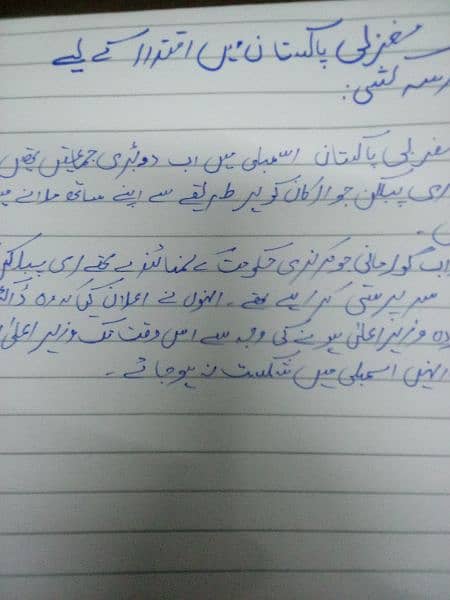 مغربی پاکستان میں اقتدار کے لیے
رسہ کشی:
مغربی پاکستان اسمبلی میں اب دو بڑی جماعتیں تھیں
ری پبلکن جو ارکان کو ہر طریقے سے اپنے ساتھ ملانے
اب گورمانی جو مرکزی حکومت کے نمائندے تھے ری پبلکن
سرپرستی کر رہے تھے۔ انہوں نے اعلان کیا کہ وہ ڈاکٹر
وزیر اعلیٰ ہونے کی وجہ سے اس وقت تک وزیر اعلیٰ
انہیں اسمبلی میں شکست نہ ہو جائے۔